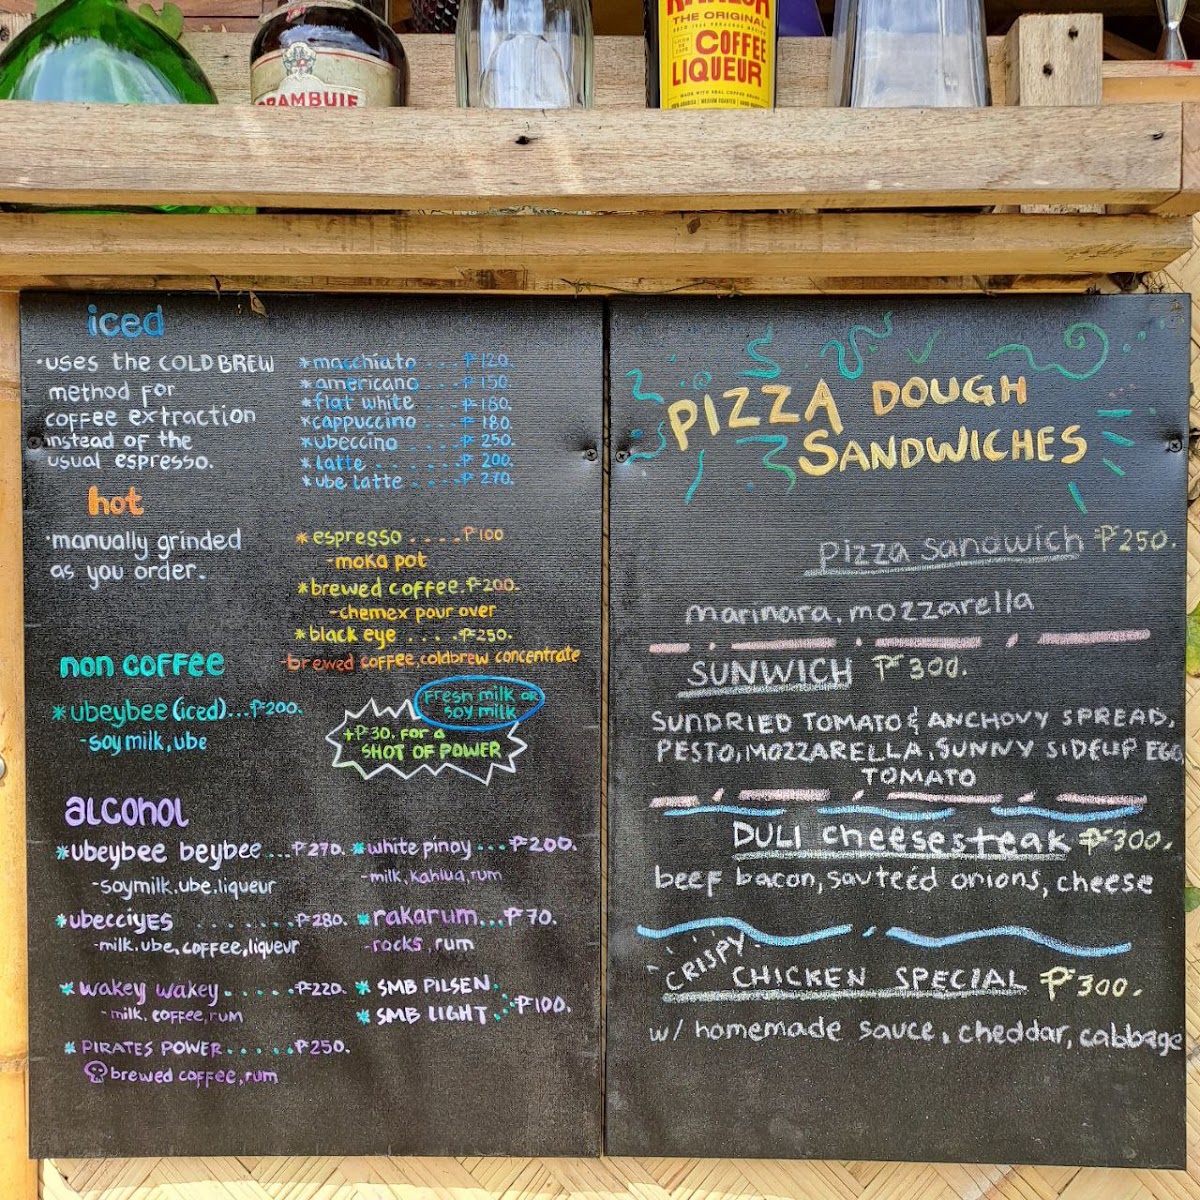 DRAMBUIE
KAHLÚA
THE ORIGINAL
COFFEE
LIQUEUR
iced
•uses the COLD BREW
method for
coffee extraction
instead of the
usual espresso.
*macchiato....₱120.
*americano...₱150.
*flat white....₱180.
*cappuccino..₱180.
*ubeccino.....₱250.
*latte.........₱200.
*ube latte....₱270.
hot
•manually grinded
as you order.
*espresso.....₱100
-moka pot
*brewed coffee.₱200.
-chemex pour over
*black eye.....₱250.
-brewed coffee,coldbrew concentrate
non coffee
*ubeybee(iced)...₱200.
-soymilk,ube
Fresh milk or
soy milk
+₱30. for a
SHOT OF POWER
alcohol
*ubeybee beybee...₱270.
-soymilk.ube.liqueur
*ubecciyes........₱280.
-milk.ube,coffee,liqueur
*wakey wakey......₱220.
-milk.coffee,rum
*PIRATES POWER.....₱250.
brewed coffee,rum
*white pinoy...₱200.
-milk,kahlua,rum
*rakarum...₱70.
-rocks,rum
*SMB PILSEN.
*SMB LIGHT..:₱100.
PIZZA DOUGH
SANDWICHES
pizza sandwich ₱250.
marinara,mozzarella
SUNWICH ₱300.
SUNDRIED TOMATO & ANCHOVY SPREAD,
PESTO,MOZZARELLA,SUNNY SIDEUP EGG
TOMATO
DULI cheesesteak ₱300.
beef bacon,sautéed onions,cheese
CRISPY
CHICKEN SPECIAL ₱300.
w/ homemade sauce, cheddar, cabbage